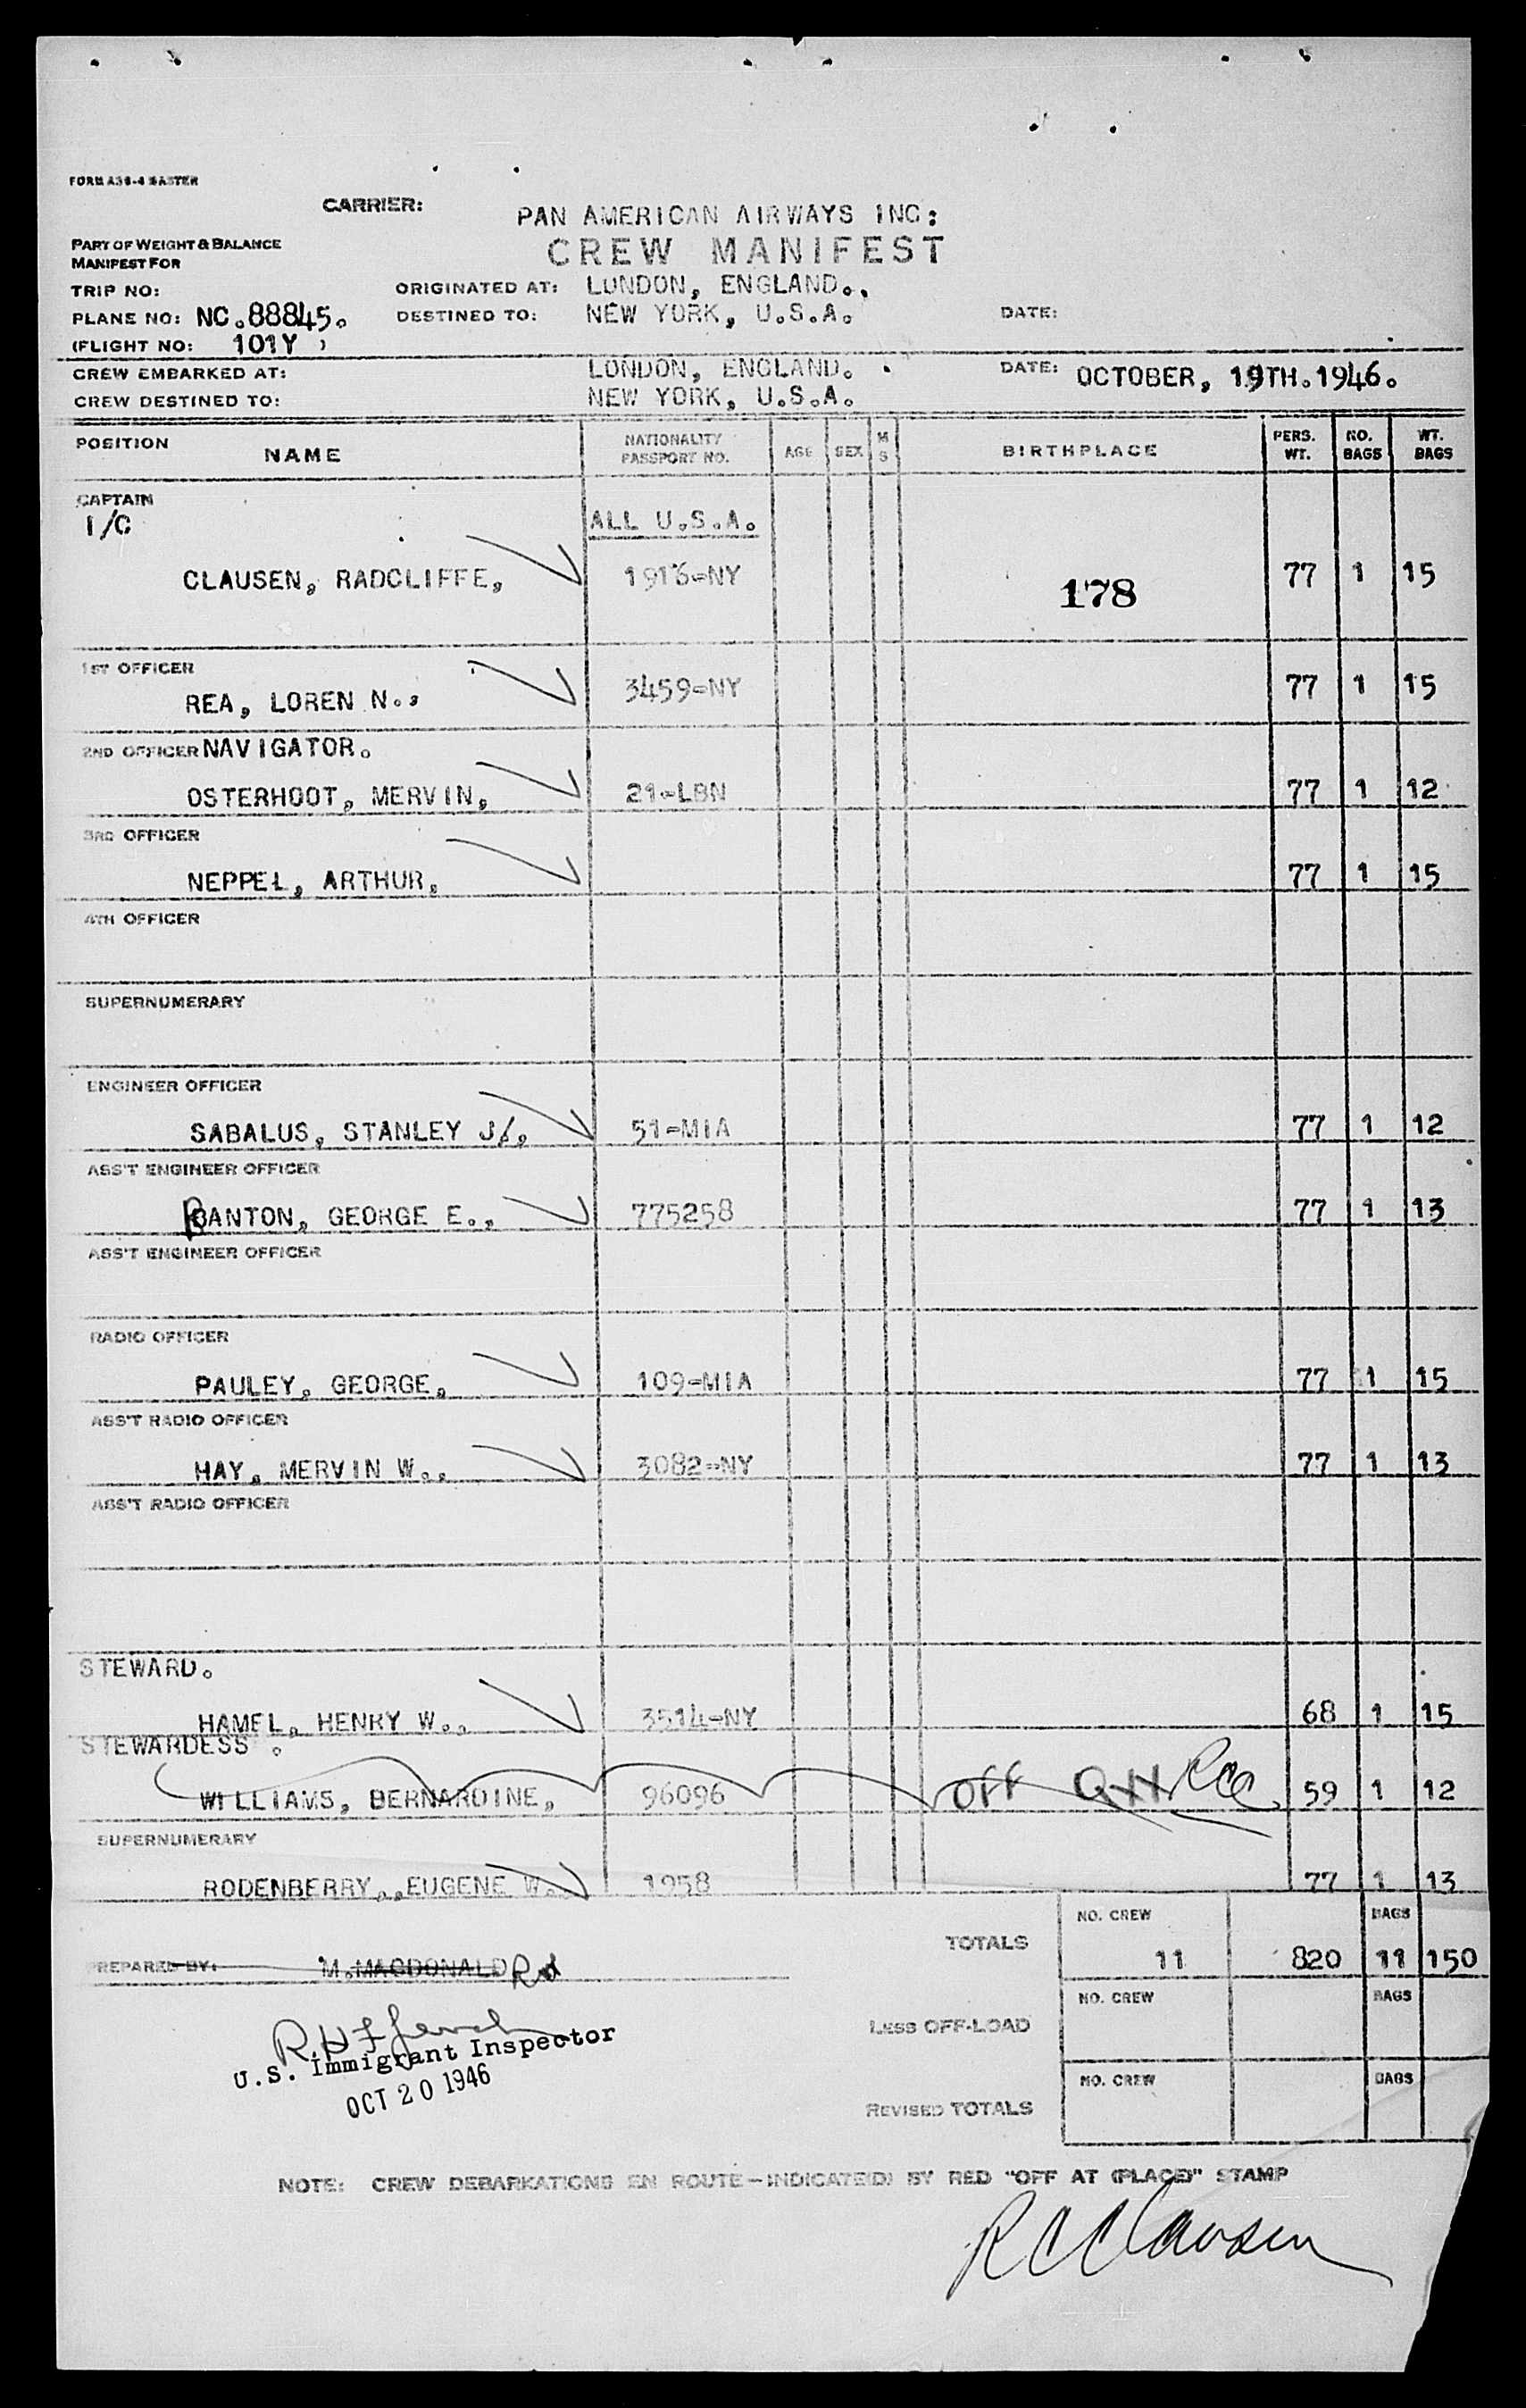 FORM A36-4 EASTER
CARRIER: PAN AMERICAN AIRWAYS INC:
CREW MANIFEST
PART OF WEIGHT & BALANCE
MANIFEST FOR
TRIP NO: ORIGINATED AT: LONDON, ENGLAND.,
PLANE NO: NC.88845. DESTINED TO: NEW YORK, U.S.A. DATE:
(FLIGHT NO: 101Y )
CREW EMBARKED AT: LONDON, ENGLAND. DATE: OCTOBER, 19TH.1946.
CREW DESTINED TO: NEW YORK, U.S.A.
POSITION NAME NATIONALITY PASSPORT NO. AGE SEX M S BIRTHPLACE PERS. WT. NO. BAGS WT. BAGS
CAPTAIN
I/C ALL U.S.A.
CLAUSEN, RADCLIFFE, 1916-NY 178 77 1 15
1ST OFFICER
REA, LOREN N., 3459-NY 77 1 15
2ND OFFICER NAVIGATOR.
OSTERHOOT, MERVIN, 21-LBN 77 1 12
3RD OFFICER
NEPPEL, ARTHUR, 77 1 15
4TH OFFICER
SUPERNUMERARY
ENGINEER OFFICER
SABALUS, STANLEY J., 51-MIA 77 1 12
ASS'T ENGINEER OFFICER
BANTON, GEORGE E., 775258 77 1 13
ASS'T ENGINEER OFFICER
RADIO OFFICER
PAULEY, GEORGE, 109-MIA 77 1 15
ASS'T RADIO OFFICER
HAY, MERVIN W., 3082-NY 77 1 13
ASS'T RADIO OFFICER
STEWARD.
HAMEL, HENRY W., 3514-NY 68 1 15
STEWARDESS .
WILLIAMS, BERNARDINE, 96096 Off 59 1 12
SUPERNUMERARY
RODENBERRY,,EUGENE W., 1958 77 1 13
TOTALS NO. CREW 11 820 BAGS 11 150
PREPARED BY: M.MACDONALD
LESS OFF-LOAD NO. CREW BAGS
U.S. Immigrant Inspector
OCT 20 1946
REVISED TOTALS NO. CREW BAGS
NOTE: CREW DEBARKATIONS EN ROUTE—INDICATE(D) BY RED "OFF AT (PLACE)" STAMP
R C Clausen